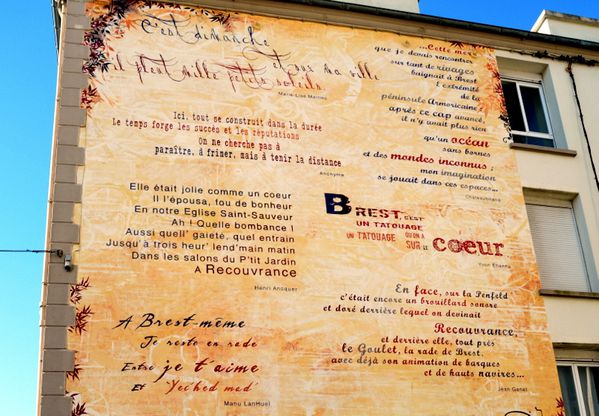 C'est dimanche
et sur ma ville
il pleut mille petits soleils
Marie-Lise Martins
...Cette mer
que je devais rencontrer
sur tant de rivages
baignait à Brest
l'extrémité
de la
péninsule Armoricaine
après ce cap avancé,
il n'y avait plus rien
qu'un océan
sans bornes
et des mondes inconnus ;
mon imagination
se jouait dans ces espaces...
Chateaubriand
Ici, tout se construit dans la durée
Le temps forge les succès et les réputations
On ne cherche pas à
paraître, à frimer, mais à tenir la distance
Anonyme
Elle était jolie comme un coeur
Il l'épousa, fou de bonheur
En notre Eglise Saint-Sauveur
Ah ! Quelle bombance !
Aussi quell' gaieté, quel entrain
Jusqu'à trois heur' lend'main matin
Dans les salons du P'tit Jardin
A Recouvrance
Henri Ansquer
Brest, c'est
un tatouage
un tatouage qu'on a
sur le coeur
Yvon Etienne
A Brest-même
Je reste en rade
Entre je t'aime
Et "Yec'hed mad"
Manu LanHuel
En face, sur la Penfeld
c'était encore un brouillard sonore
et doré derrière lequel on devinait
Recouvrance,
et derrière elle, tout près,
le Goulet, la rade de Brest,
avec déjà son animation de barques
et de hauts navires...
Jean Genet